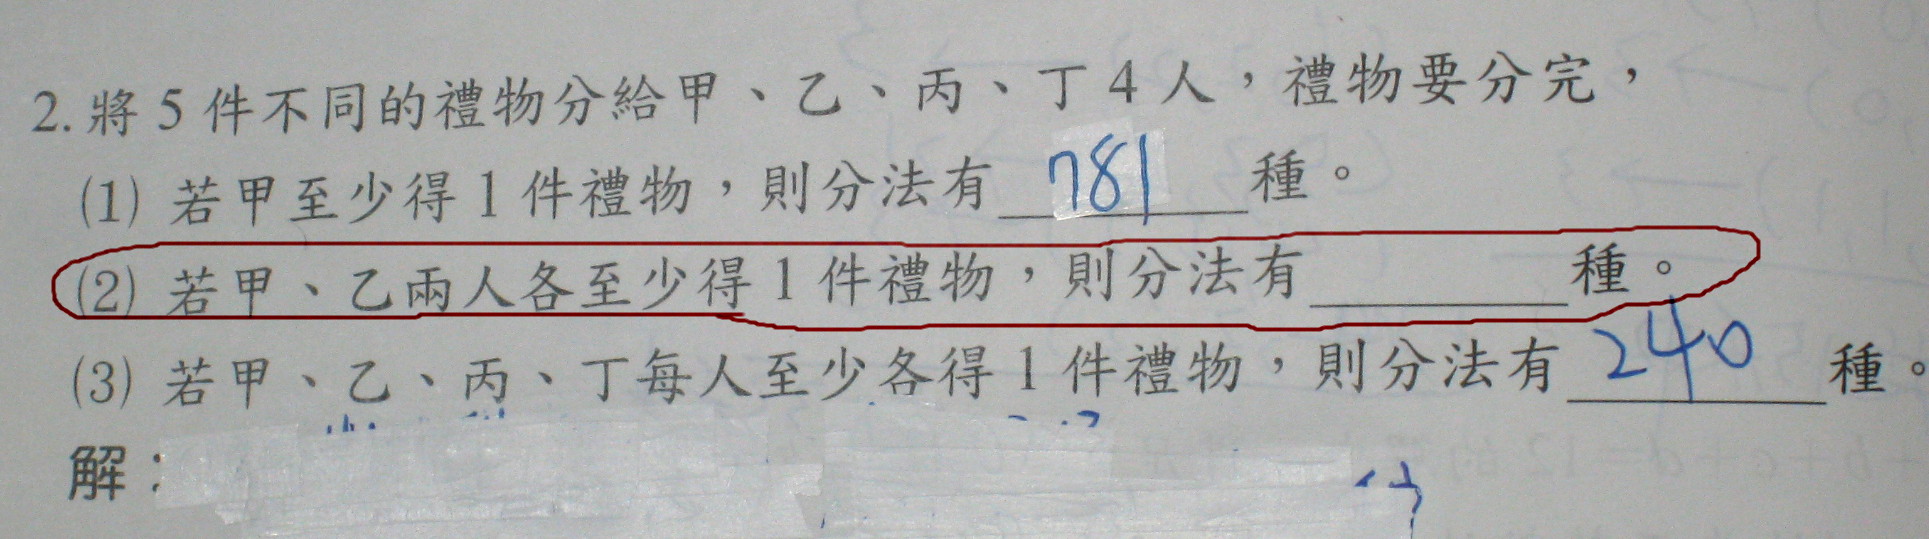 2. 將 5 件不同的禮物分給甲、乙、丙、丁 4 人，禮物要分完，
(1) 若甲至少得 1 件禮物，則分法有 781 種。
(2) 若甲、乙兩人各至少得 1 件禮物，則分法有______種。
(3) 若甲、乙、丙、丁每人至少各得 1 件禮物，則分法有 240 種。
解：